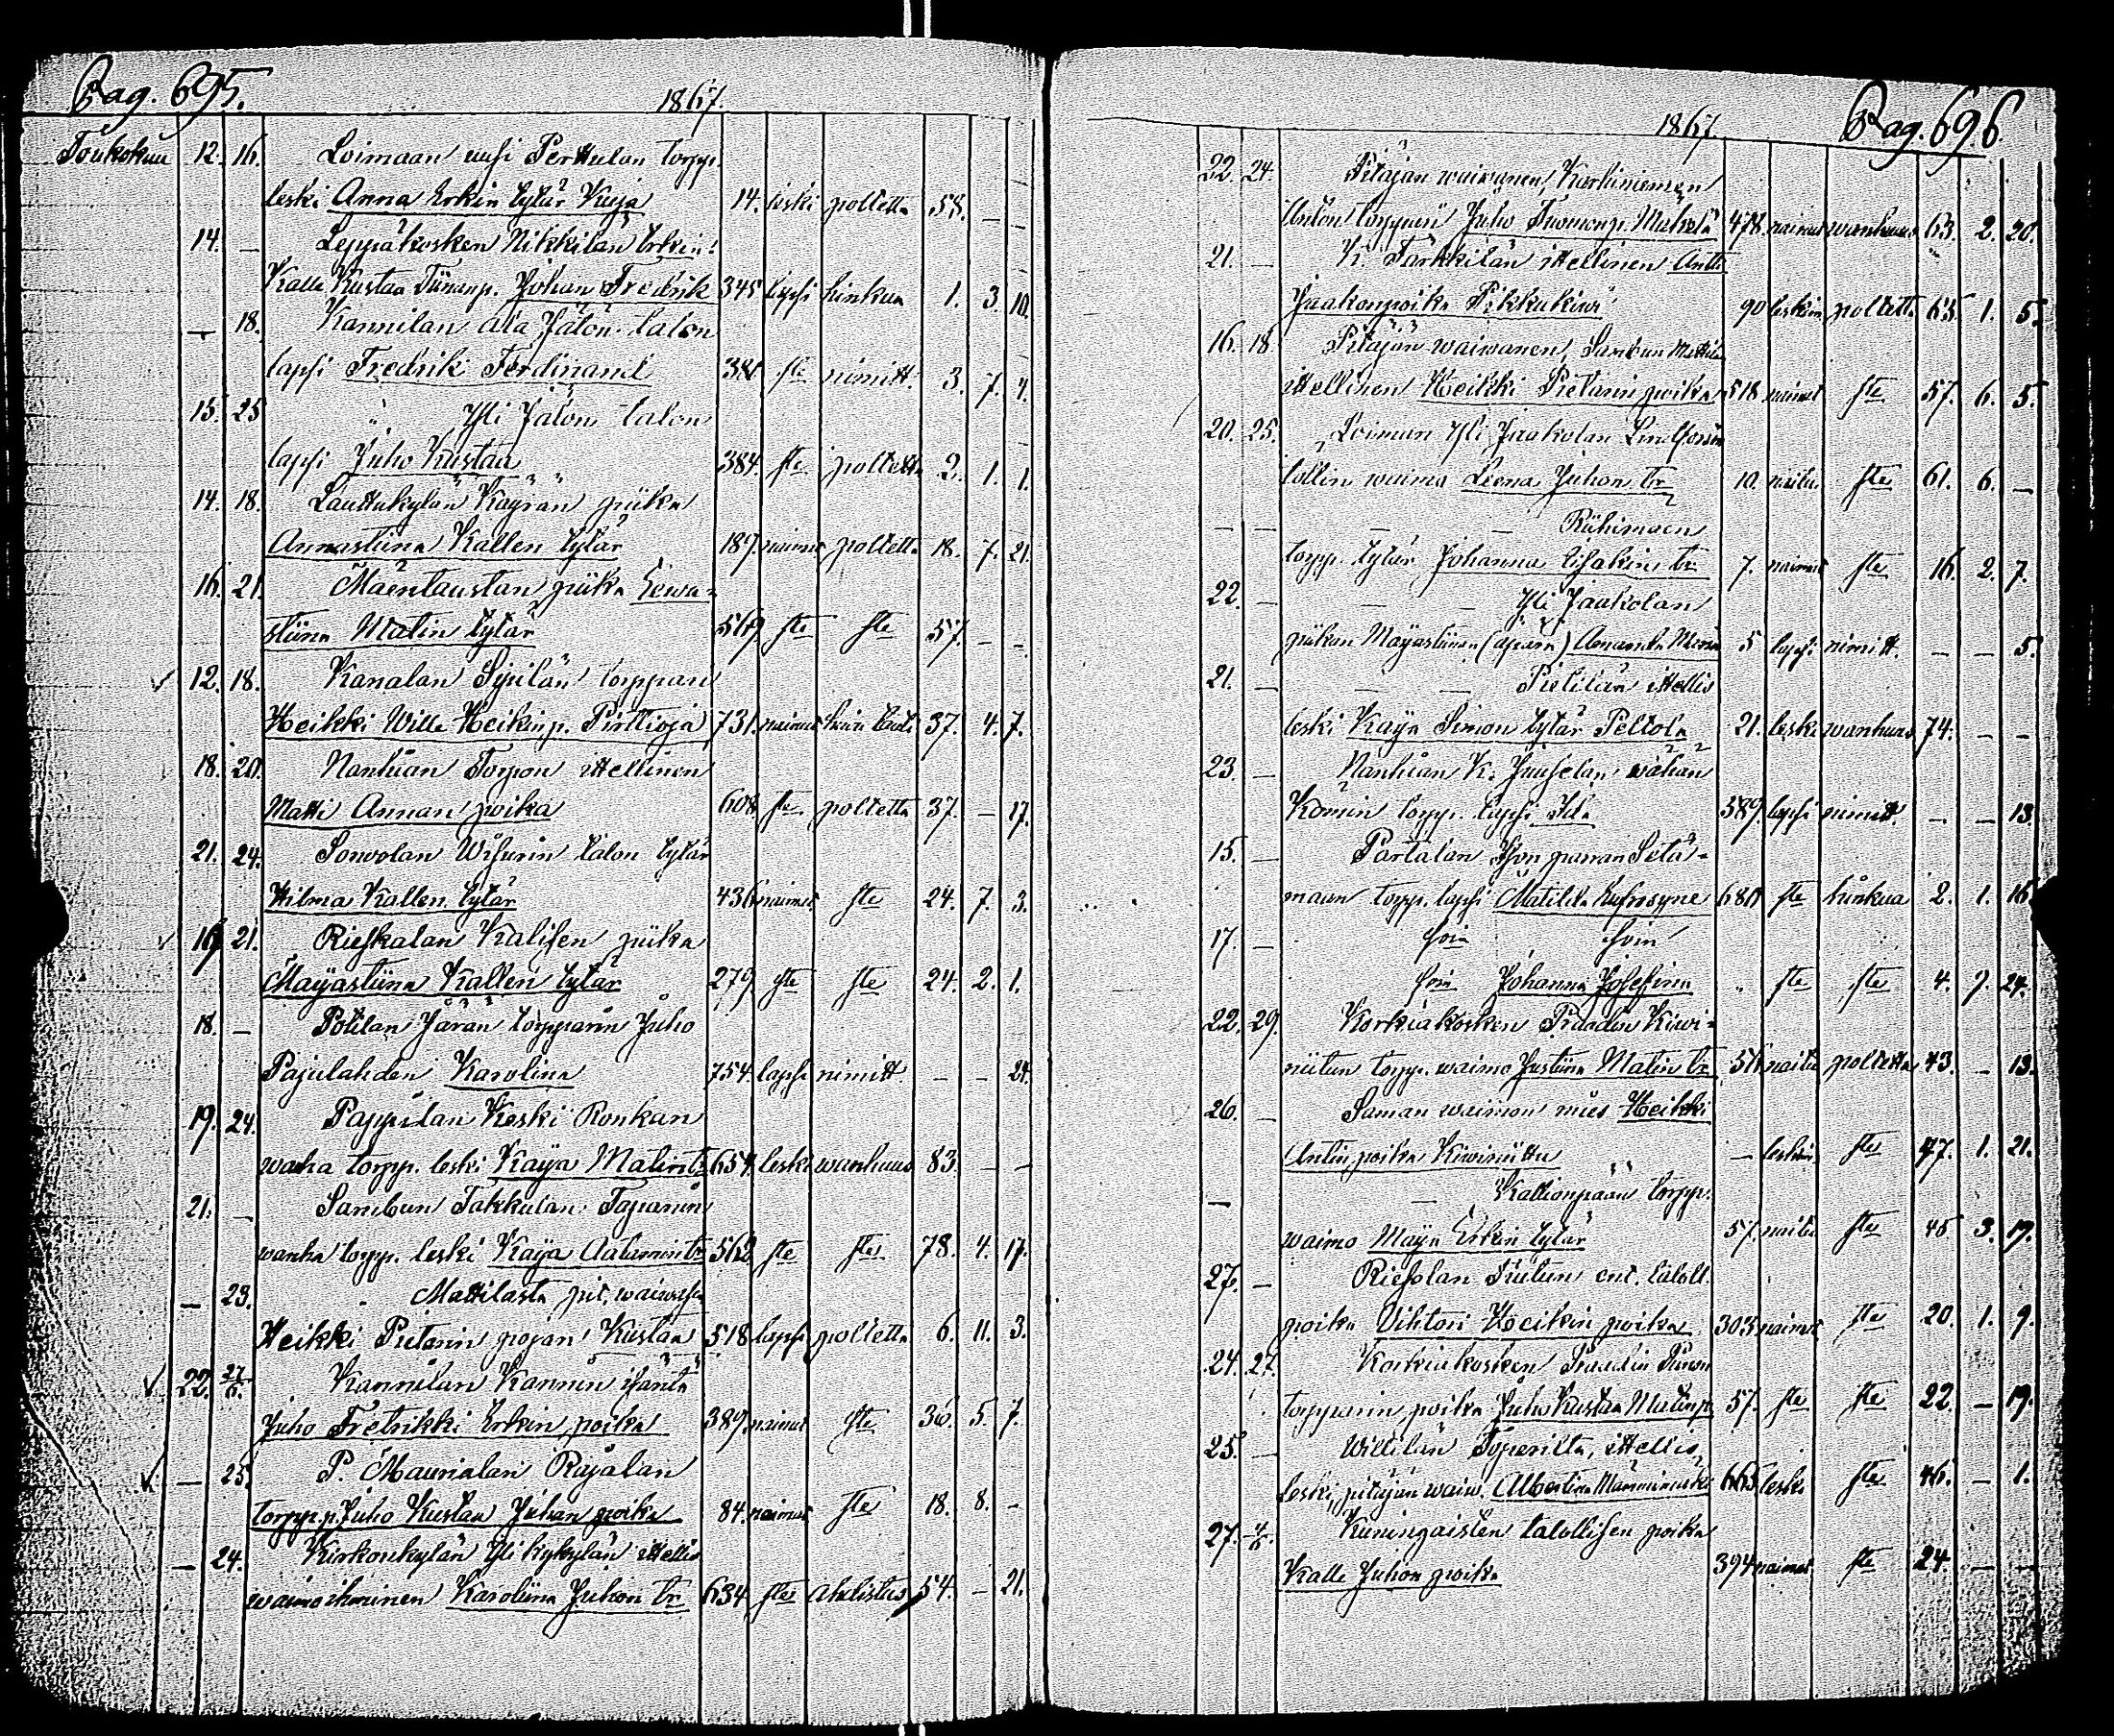 Pag. 695.
1867.
Toukokuu 12. 16. Loimaan uusi Perttulan torpp.
leski Anna Erkin tytär Kuja 14. leski poltetta 58. — —
14. — Leppäkosken Nikkilän Erkin
Kalle Kustaa Tiinanp. Johan Fredrik 345 lapsi hinkua 1. 3. 10.
— 18. Kannilan ala Jälön talon
lapsi Fredrik Ferdinand 381 ste nimitt. 3. 7. 4.
15. 25. " Yli Jälön talon
lapsi Juho Kustaa 384 ste poltetta 2. 1. 1.
14. 18. Lauttakylän Käyrän piika
Annastiina Kallen tytär 187. naimat poltetta 18. 7. 21.
16. 21. Mäentaustan piika Eewa-
stiina Matin tytär 569 ste ste 57. — —
12. 18. Kanalan Sipilän torppari
Heikki Wille Heikinp. Pirttioja 731. naimut 37. 4. 7.
18. 20. Nanhian Torpon ittellinen
Matti Annan poika 608 ste poltetta 37. — 17.
21. 24. Sorwolan Wisurin talon tytär
Wilma Kallen tytär 436 naimat ste 24. 7. 3.
16. 21. Rieskalan Kalisen piika
Mayastiina Kallen tytär 279 ste ste 24. 2. 1.
18. — Potilan Järän torpparin Juho
Pajulahden Karolina 754. lapsi nimitt. — — 24.
19. 24. Pappilan Keski Ronkan
wanha torpp. leski Kaya Matint. 654. leski wanhuus 83. — —
21. — Sambun Takkulan Taparin
wanha torpp. leski Kaya Aatamintr 562 ste ste 78. 4. 17.
— 23. Mattilasta pit. waiwasen
Heikki Pietarin pojan Kustaa 518 lapsi poltetta 6. 11. 3.
22. Kannilan Kannin isäntä
Juho Fretrikki Erkin poika 389. naimut ste 36. 5. 7.
— 25. P. Maurialan Rajalan
torpp. p. Juho Kustaa Juhan poika 84. naimat ste 18. 8. —
— 24. Kirkonkylän Yli kykylän ittellis
waimoihminen Karoliina Juhon tr 634 ste ahdistus 54. — 21.
1867
Pag. 696
22. 24. Pitäjän waiwanen, Karhiniemen
Anton torppari Juho Tuomonp. Mäkelä 478. naimut wanhuus 63. 2. 20.
21. — K. Tarkkilan ittellinen Antti
Jaakonpoika Pikkukiwi 90 leskim poltetta 65. 1. 5.
16. 18. Pitäjän waiwanen, Sambun Mattilan
ittellinen Heikki Pietarin poika 518 naimut ste 57. 6. 5.
20. 25. Loiman Yli Jaakolan
tollin waimo Leena Juhon tr 10. naitu ste 61. 6. —
— — — — Riihimaen
torpp. tytär Johanna Eisakin tr 7. naimat ste 16. 2. 7.
22. — — — Yli Jaakolan
piikan Mayastiinan (äpärä) Amanda Maria 5 lapsi nimitt. — — 5.
21. — — — Pietilän ittellis
leski Kaya Simon tytär Peltola 21. leski wanhuus 74. — —
23. — Nanhian K. Juuselan wähän
Komin torpp. lapsi Ida 589 lapsi nimitt. — — 13.
15. — Partalan Ison pannan Setä-
maan torpp. lapsi Matilda Eufrosyne 680 ste hinkua 2. 1. 16.
17. — soin soin
soin Johanna Josefina " ste ste 4. 7. 24.
22. 29. Korkiakosken Praadin Kiwi-
niitun torpp. waimo Justiina Matin tr 56 naitu poltetta 43. — 13.
26. — Saman waimon mies Heikki
Antin poika Kiwiniittu — leskim. ste 47. 1. 21.
— — Kallionpään torpp.
waimo Maya Erkin tytär 57. naitu ste 45 3. 19.
27. — Riesolan ent. taloll.
poika Vihtori Heikin poika 303 naimat ste 20. 1. 9.
24. 27. Korkiakosken Praadin
torpparin poika Juho Kustaa Matinp. 57. ste ste 22. — 19.
25. — Willilän ittellis
leski, pitäjän waiw. Albertina 665 leski ste 46. — 1.
27. Kuningaisten talollisen poika
Kalle Juhon poika 394 naimat ste 24. — —